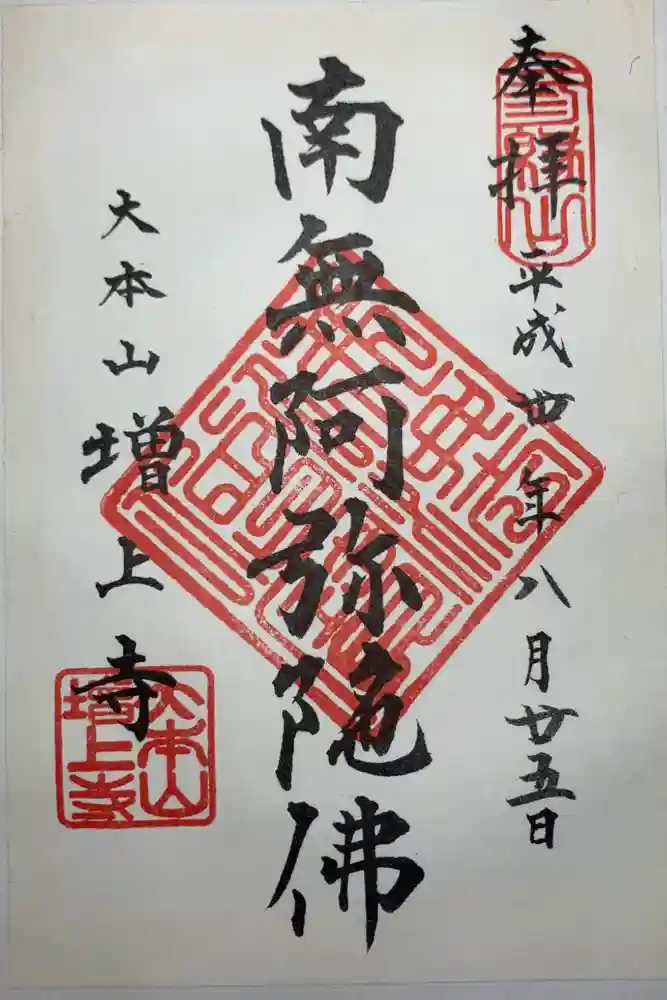 奉拝 平成丗年八月廿五日
南無阿弥陀佛
大本山 増上寺
大本山
増上寺